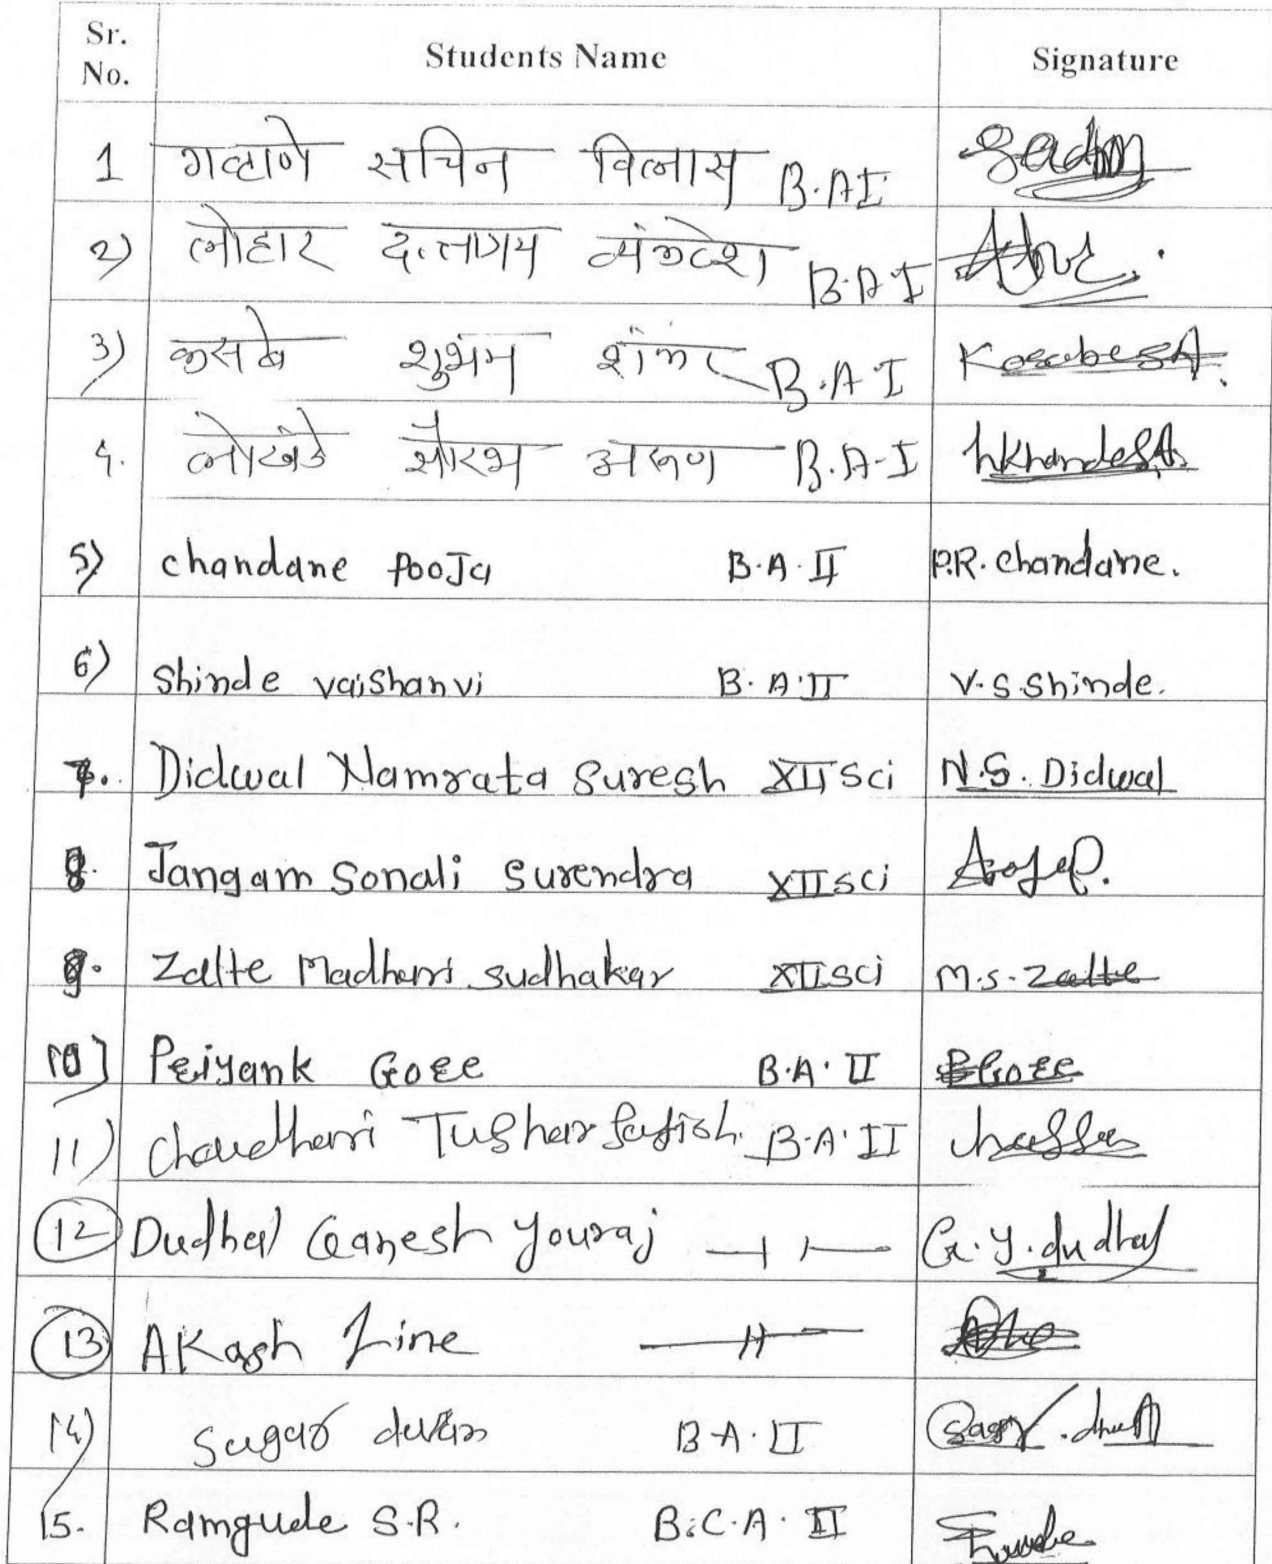 Sr. No. Students Name Signature
1 गव्हाणे सचिन विलास B.A I Sachin
2) लोहार दत्तात्रय व्यंकटेश B.A I
3) कसबे शुभंम शंकर B.A I Kasabe S.A.
4. लोखंडे सौरभ अरूण B.A-I Lkhande S.A.
5) chandane PooJa B.A.II P.R. chandane.
6) Shinde vaishanvi B.A.II V.S.Shinde.
7. Didwal Namrata Suresh XII Sci N.S. Didwal
8. Jangam Sonali Surendra XII sci
9. Zalte Madhuri sudhakar XII sci M.S.Zalte
10] Priyank Gore B.A.II PGore
11) Chaudhari Tushar Satish B.A.II
12 Dudhal Ganesh Youraj —॥— G.Y.dudhal
13 AKash Line —॥—
14) Sagar B.A.II Sagar
15. Ramgude S.R. B.C.A.II